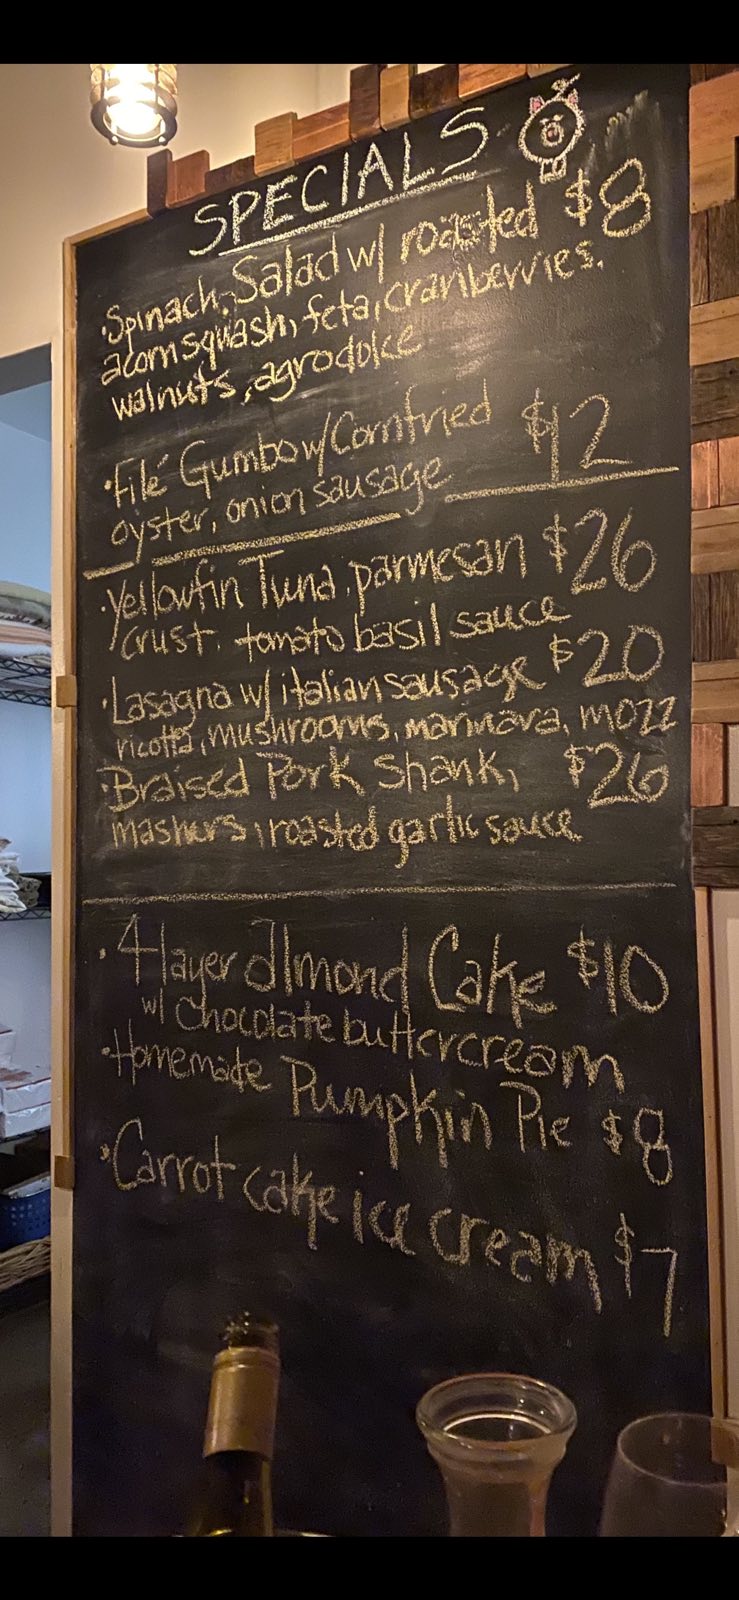 SPECIALS
·Spinach Salad w/ roasted $8
acorn squash, feta, cranberries,
walnuts, agrodolce
·Filé Gumbo w/ Cornfried $12
oyster, onion sausage
·Yellowfin Tuna, parmesan $26
crust, tomato basil sauce
·Lasagna w/ italian sausage $20
ricotta, mushrooms, marinara, mozz
·Braised Pork Shank, $26
mashers, roasted garlic sauce
·4 layer almond Cake $10
w/ chocolate buttercream
·Homemade Pumpkin Pie $8
·Carrot cake ice cream $7